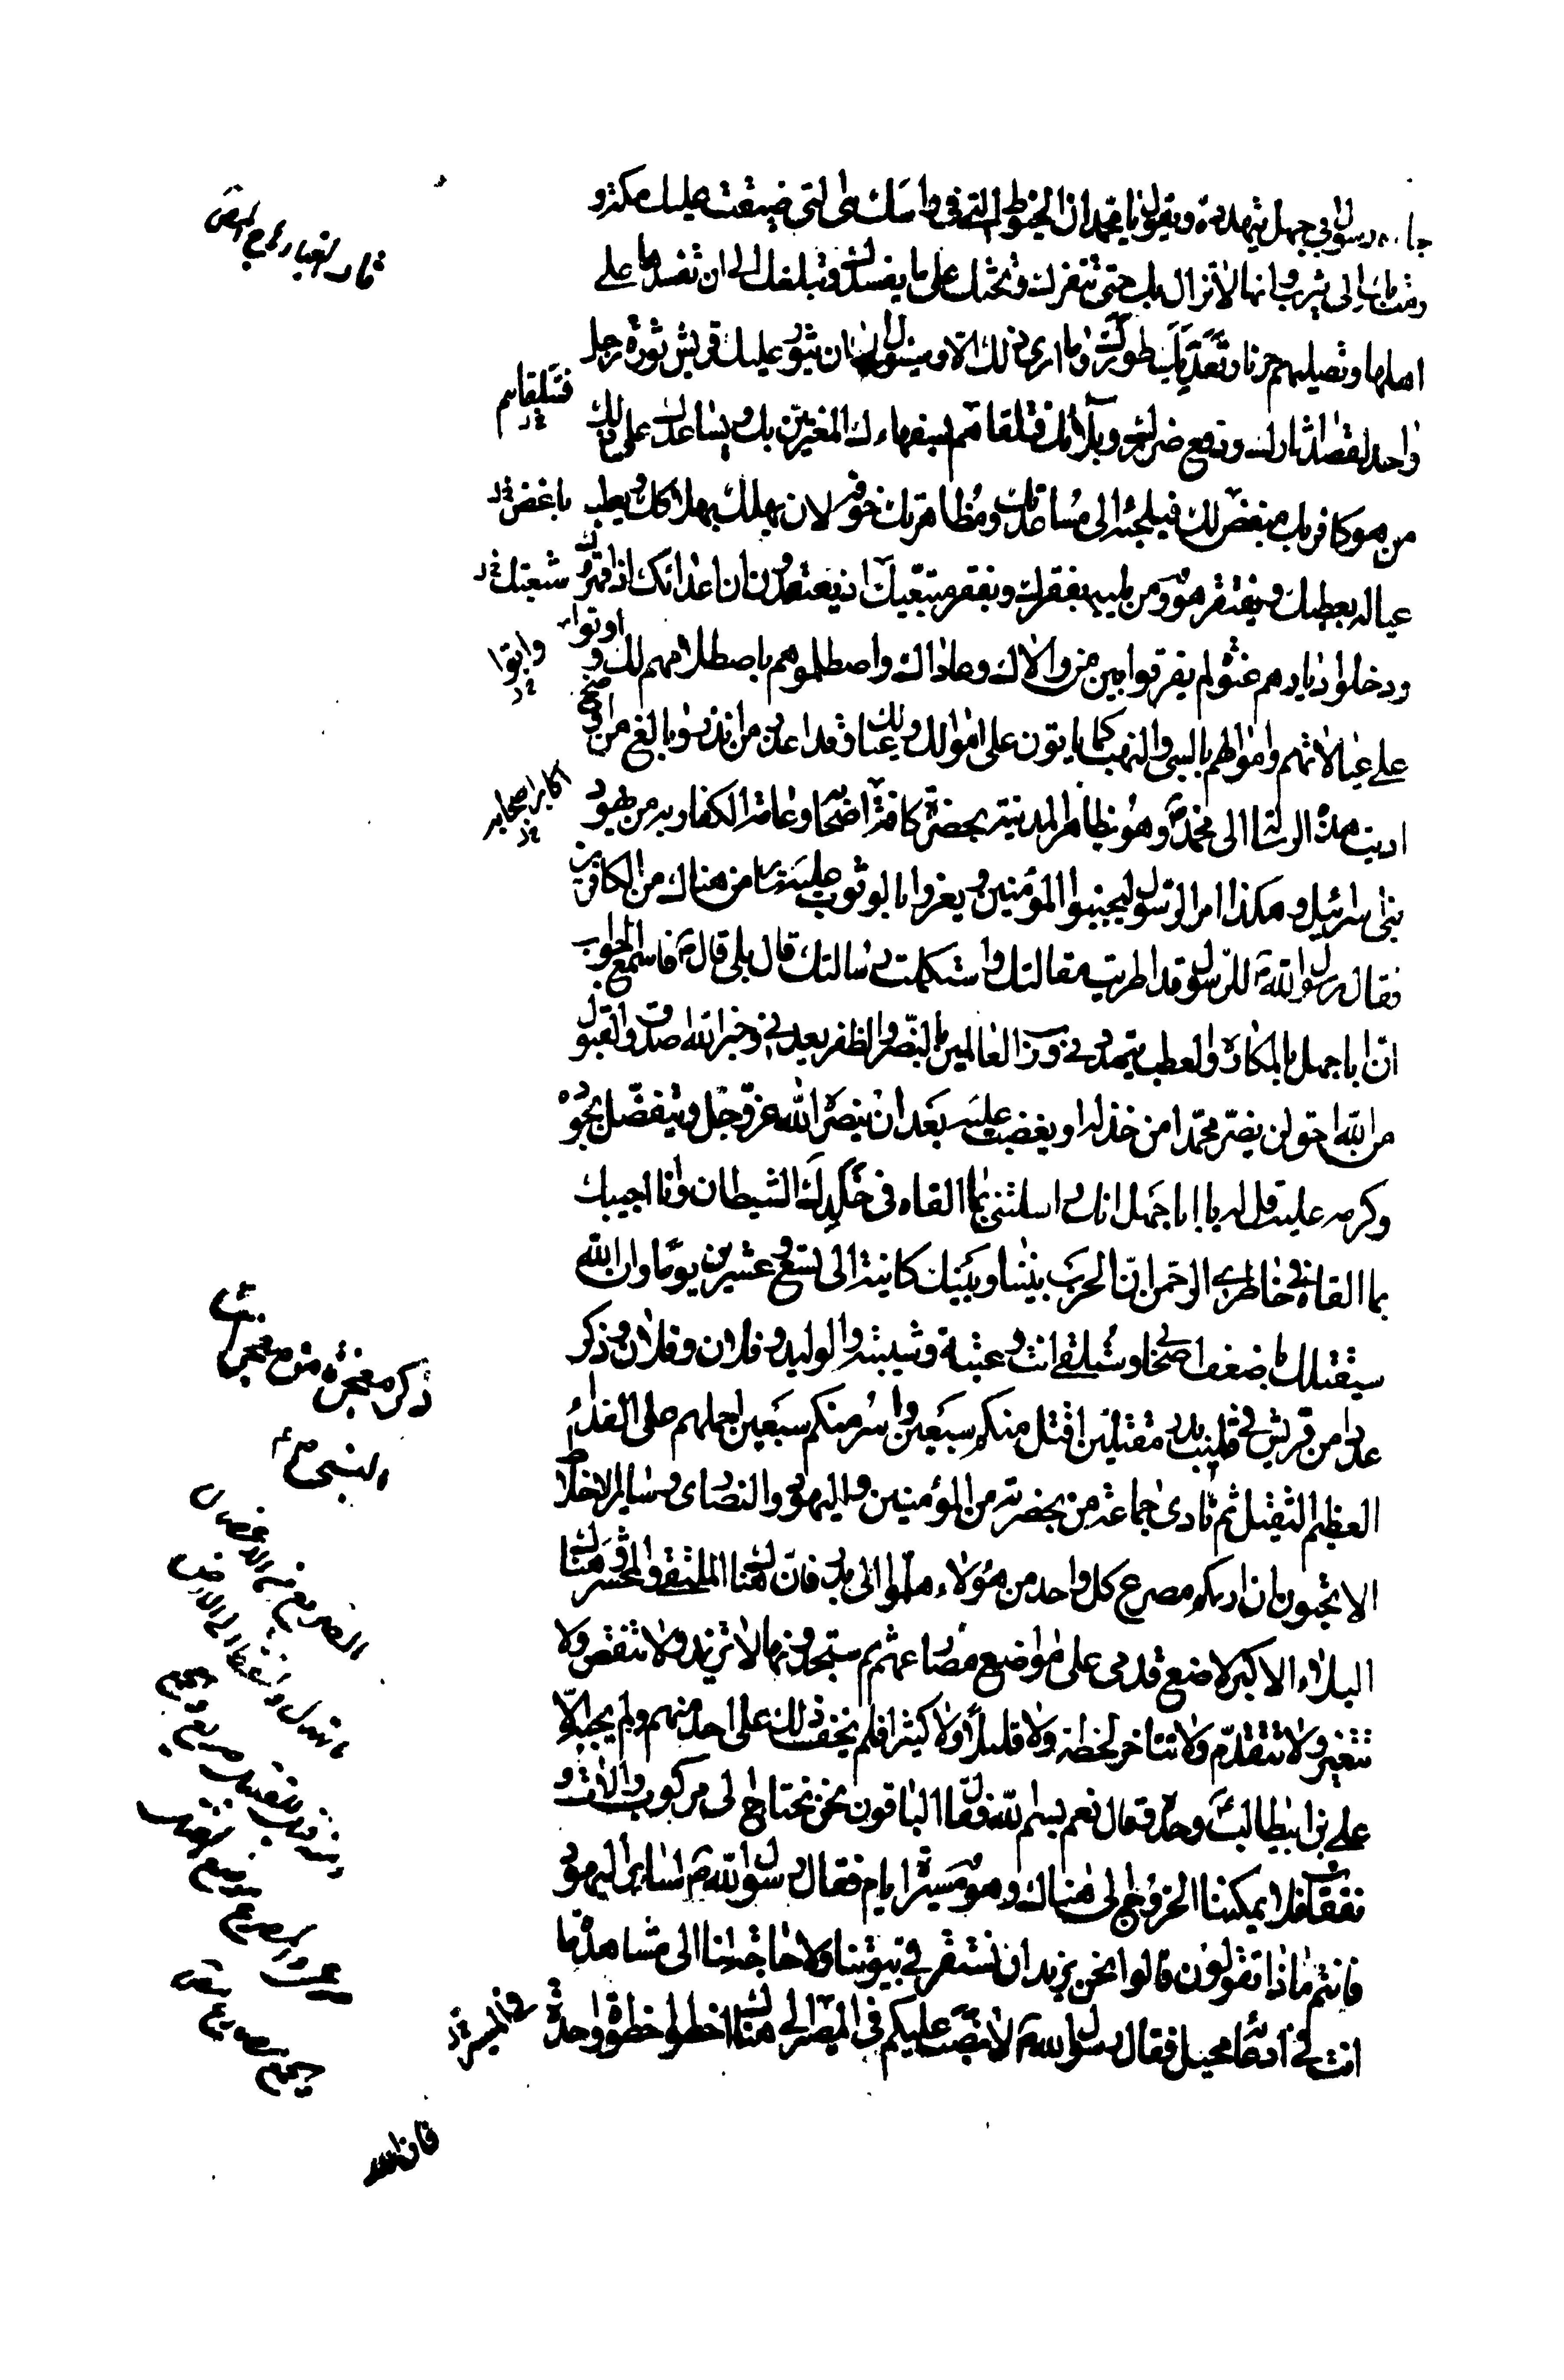 جاءه رسول ابي جهل يتهدده ويقول يا محمد ان الخيوط التي في راسك هي التي ضيقت عليك مكة و
رمت بك الى يثرب وانها لا تزال بك حتى تنفرك وتحثك على ما يفسدك ويتلفك الى ان تفسدها على
اهلها وتصليهم حر نار تعديك طورك وما ارى ذلك الا وسيئول الى ان تثور عليك قريش ثورة رجل
واحد لقصد اثارك ودفع ضرك وبلائك فتلقاهم بسفهاءك المغترين بك ويساعدك على ذلك
من هو كافر بك مبغض لك فيلجئه الى مساعدتك ومظاهرتك خوفه لان يهلك بهلاكك ويعطب
عياله بعطبك ويفتقر هو ومن يليه بفقرك وبفقر متبعيك اذ يعتقدون ان اعدائك اذا قهروك
ودخلوا ديارهم عنوة لم يفرقوا بين من والاك وعاداك واصطلموهم باصطلامهم لك و
على عيالاتهم واموالهم بالسبي والنهب كما ياتون على اموالك وعيالك وقد اعذر من انذر وبالغ من اوضح
اديت هذه الرسالة الى محمد وهو بظاهر المدينة بحضرة كافة اصحابه وعامة الكفار به من يهود
بني اسرائيل وهكذا امر الرسول ليجنبوا المؤمنين ويغروا بالوثوب عليه سائر من هناك من الكافرين
فقال رسول الله للرسول قد اطريت مقالتك واستكملت رسالتك قال بلى قال فاسمع الجواب
ان ابا جهل بالمكاره والعطب يتهددني ورب العالمين بالنصر والظفر يعدني وخبر الله اصدق والقبول
من الله احق لن يضر محمدا من خذله او يغضب عليه بعد ان ينصره الله عز وجل ويتفضل بجوده
وكرمه عليه قل له يا ابا جهل انك راسلتني بما القاه في خلدك الشيطان وانا اجيبك
بما القاه في خاطري الرحمن ان الحرب بيننا وبينك كائنة الى تسع وعشرين يوما وان الله
سيقتلك باضعف اصحابي وستلقى انت وعتبة وشيبة والوليد وفلان وفلان وذكر
عددا من قريش في قليب بدر مقتلين اقتل منكم سبعين واسر منكم سبعين احملهم على الفداء
العظيم الثقيل ثم نادى جماعة من بحضرته من المؤمنين واليهود والنصارى وسائر الاخلاط
الا تحبون ان اريكم مصرع كل واحد من هؤلاء هلموا الى بدر فان هناك الملتقى والمحشر وهناك
البلاء الاكبر لاضع قدمي على مواضع مصارعهم ثم ستجدونها لا تزيد ولا تنقص ولا
تتغير ولا تتقدم ولا تتاخر لحظة ولا قليلا ولا كثيرا فلم يخف ذلك على احد منهم ولم يجبه الا
علي بن ابيطالب وحده فقال نعم بسم الله فقال الباقون نحن نحتاج الى مركوب والات و
نفقات فلا يمكننا الخروج الى هناك وهو مسيرة ايام فقال رسول الله لسائر اليهود
فانتم ماذا تقولون قالوا نحن نريد ان نستقر في بيوتنا ولا حاجة لنا الى مشاهدة ما
انت في ادعائه محيل فقال رسول الله لا نصب عليكم في المصير الى هناك اخطوا خطوة واحدة
فتلقاهم
باغض
شيعتك
واتوا
اكابر اصحابه
ذكر معجزة من معجزات
النبي ص
في المسير
فان الله